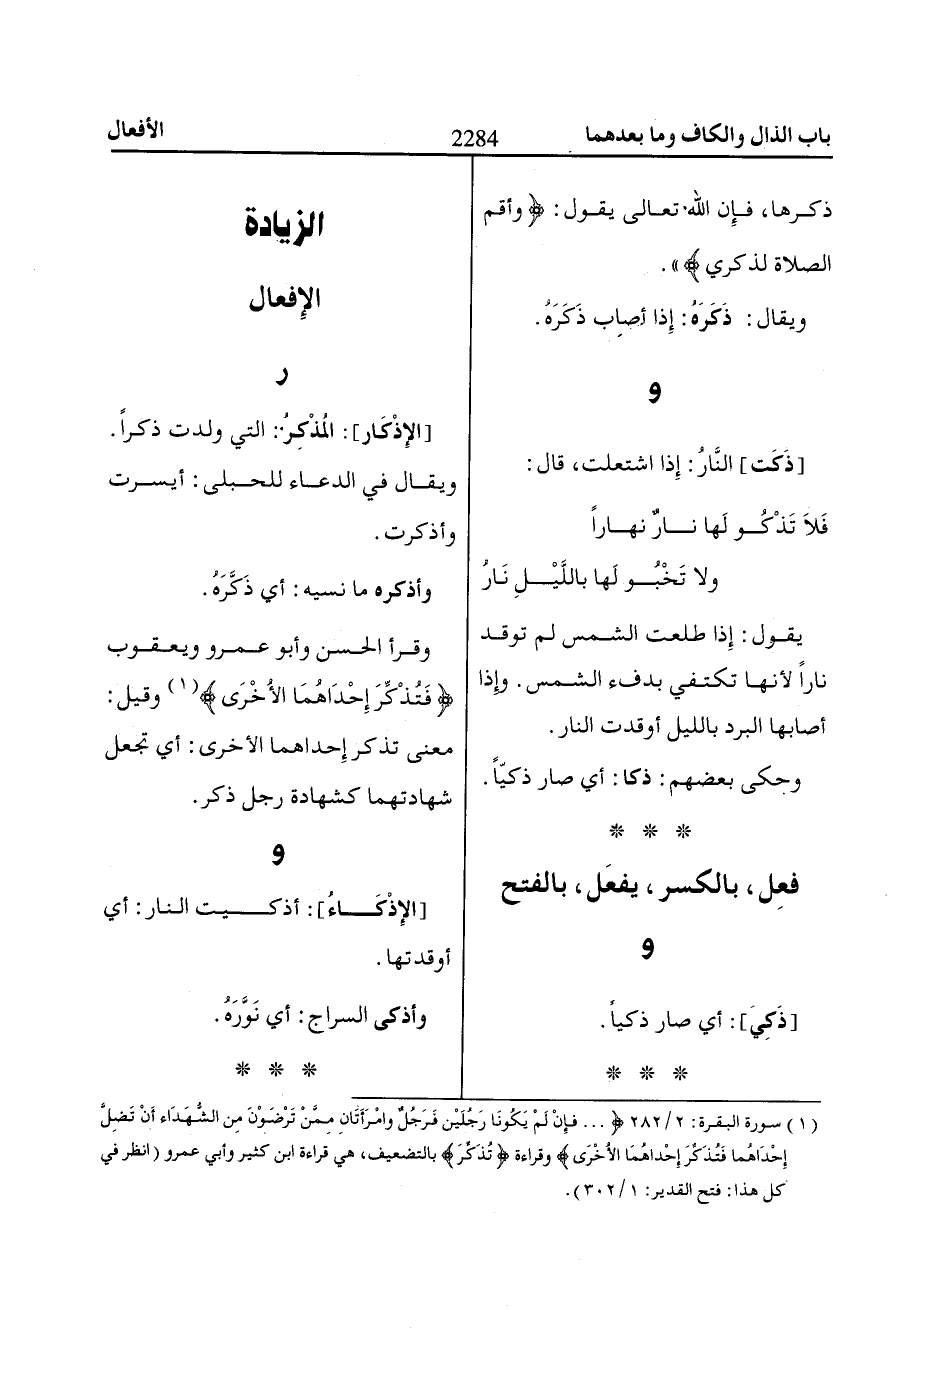 باب الذال والكاف وما بعدهما
2284
الأفعال
ذكرها، فإن الله تعالى يقول: ﴿وأقم
الصلاة لذكري﴾».
ويقال: ذَكَرَهُ: إذا أصاب ذَكَرَهُ.
و
[ذَكَت] النَّارُ: إذا اشتعلت، قال:
فَلاَ تَذْكُو لَها نارٌ نهاراً
ولا تَخْبُو لَها باللَّيْلِ نَارُ
يقول: إذا طلعت الشمس لم توقد
ناراً لأنها تكتفي بدفء الشمس. وإذا
أصابها البرد بالليل أوقدت النار.
وحكى بعضهم: ذكا: أي صار ذكيّاً.
* * *
فعِل، بالكسر، يفعَل، بالفتح
و
[ذَكِيَ]: أي صار ذكياً.
* * *
الزيادة
الإفعال
ر
[الإذْكار]: المُذْكِرُ: التي ولدت ذكراً.
ويقال في الدعاء للحبلى: أيسرت
وأذكرت.
وأذكره ما نسيه: أي ذَكَّرَهُ.
وقرأ الحسن وأبو عمرو ويعقوب
﴿فَتُذْكِرَ إِحْدَاهُمَا الأُخْرَى﴾(١) وقيل:
معنى تذكر إحداهما الأخرى: أي تجعل
شهادتهما كشهادة رجل ذكر.
و
[الإذْكَاءُ]: أذكيت النار: أي
أوقدتها.
وأذكى السراج: أي نَوَّرَهُ.
* * *
(١) سورة البقرة: ٢/ ٢٨٢ ﴿... فَإِنْ لَمْ يَكُونَا رَجُلَيْنِ فَرَجُلٌ وامْرَأَتَانِ مِمَّنْ تَرْضَوْنَ مِن الشُّهَدَاء أنْ تَضِلَّ
إحْدَاهُما فَتُذَكِّرَ إحْداهُمَا الأُخْرَى﴾ وقراءة ﴿تُذَكِّرَ﴾ بالتضعيف، هي قراءة ابن كثير وأبي عمرو (انظر في
كل هذا: فتح القدير: ١/ ٣٠٢).